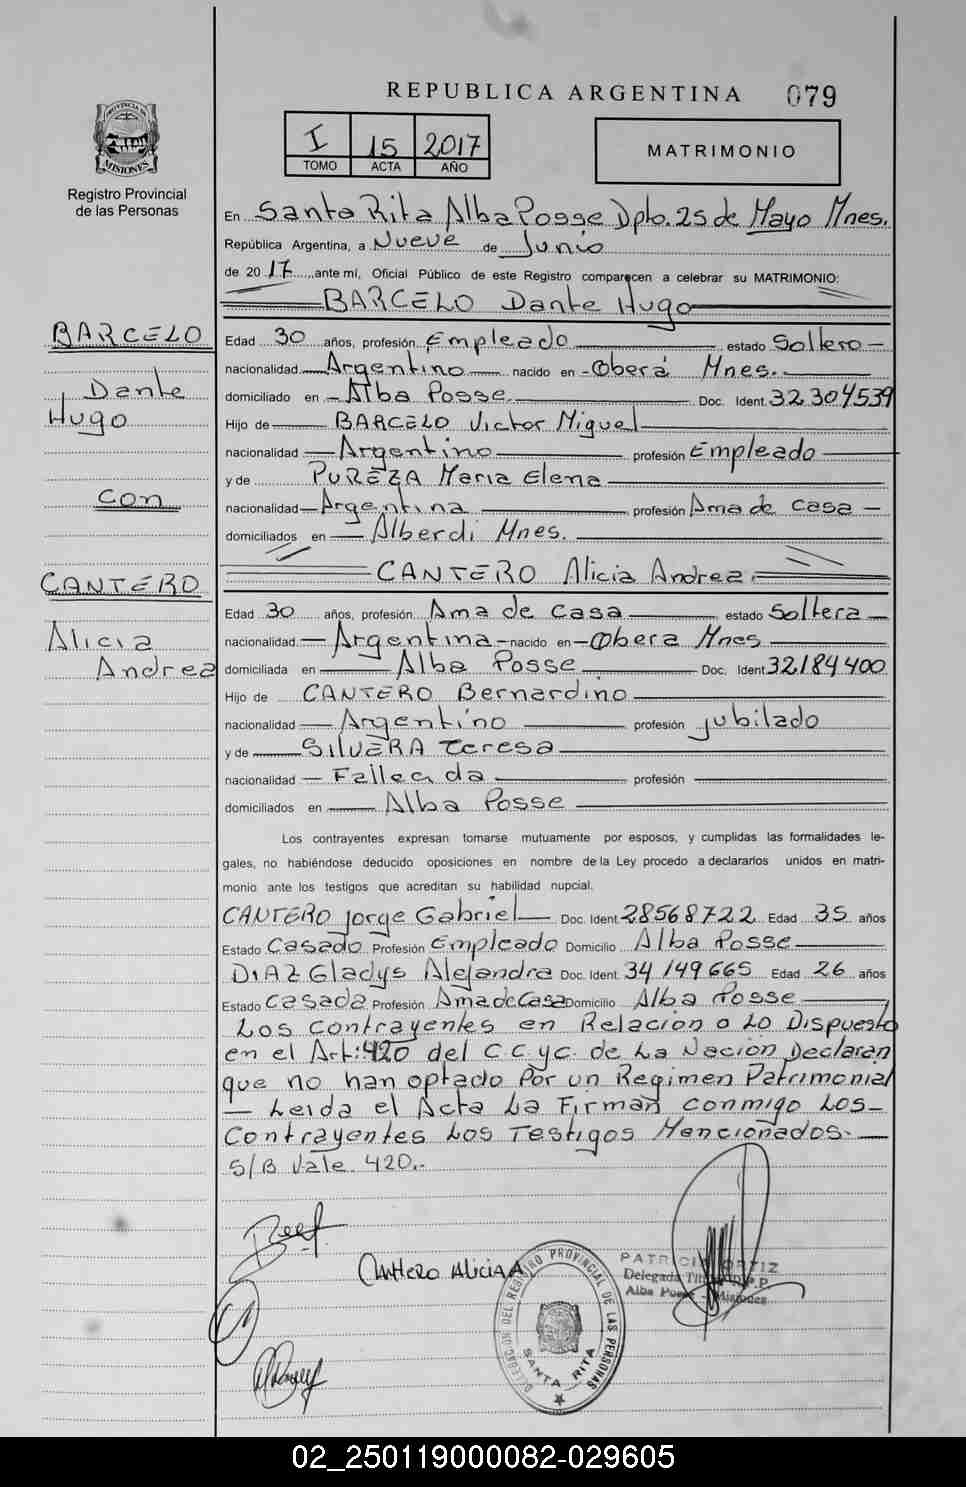 REPUBLICA ARGENTINA 079
PROVINCIA DE MISIONES
Registro Provincial
de las Personas
I 15 2017
TOMO ACTA AÑO
MATRIMONIO
En Santa Rita Alba Posse Dpto. 25 de Mayo Mnes.
República Argentina, a Nueve de Junio
de 2017, ante mí, Oficial Público de este Registro comparecen a celebrar su MATRIMONIO:
BARCELO Dante Hugo
BARCELO
Dante
Hugo
con
CANTERO
Alicia
Andrea
Edad 30 años, profesión Empleado estado Soltero
nacionalidad Argentino nacido en Oberá Mnes.
domiciliado en Alba Posse. Doc. Ident. 32304539
Hijo de BARCELO Victor Miguel
nacionalidad Argentino profesión Empleado
y de PUREZA Maria Elena
nacionalidad Argentina profesión Ama de casa
domiciliados en Alberdi Mnes.
CANTERO Alicia Andrea
Edad 30 años, profesión Ama de casa estado Soltera
nacionalidad Argentina nacido en Obera Mnes
domiciliada en Alba Posse Doc. Ident. 32184400
Hijo de CANTERO Bernardino
nacionalidad Argentino profesión jubilado
y de SILVERA Teresa
nacionalidad Fallecida profesión
domiciliados en Alba Posse
Los contrayentes expresan tomarse mutuamente por esposos, y cumplidas las formalidades le-
gales, no habiéndose deducido oposiciones en nombre de la Ley procedo a declararlos unidos en matri-
monio ante los testigos que acreditan su habilidad nupcial.
CANTERO Jorge Gabriel Doc. Ident. 28568722 Edad 35 años
Estado Casado Profesión Empleado Domicilio Alba Posse
DIAZ Gladys Alejandra Doc. Ident. 34149665 Edad 26 años
Estado Casada Profesión Ama de Casa Domicilio Alba Posse
Los contrayentes en Relacion a Lo Dispuesto
en el Art: 420 del C.C.yC. de La Nación Declaran
que no han optado Por un Regimen Patrimonial
— Leida el Acta La Firman conmigo Los
Contrayentes Los Testigos Mencionados.
S/B Vale. 420.-
Cantero Alicia A
DELEGACION DEL REGISTRO PROVINCIAL DE LAS PERSONAS
SANTA RITA
PATRICIA ORTIZ
Delegada
Alba Posse - Misiones
02_250119000082-029605